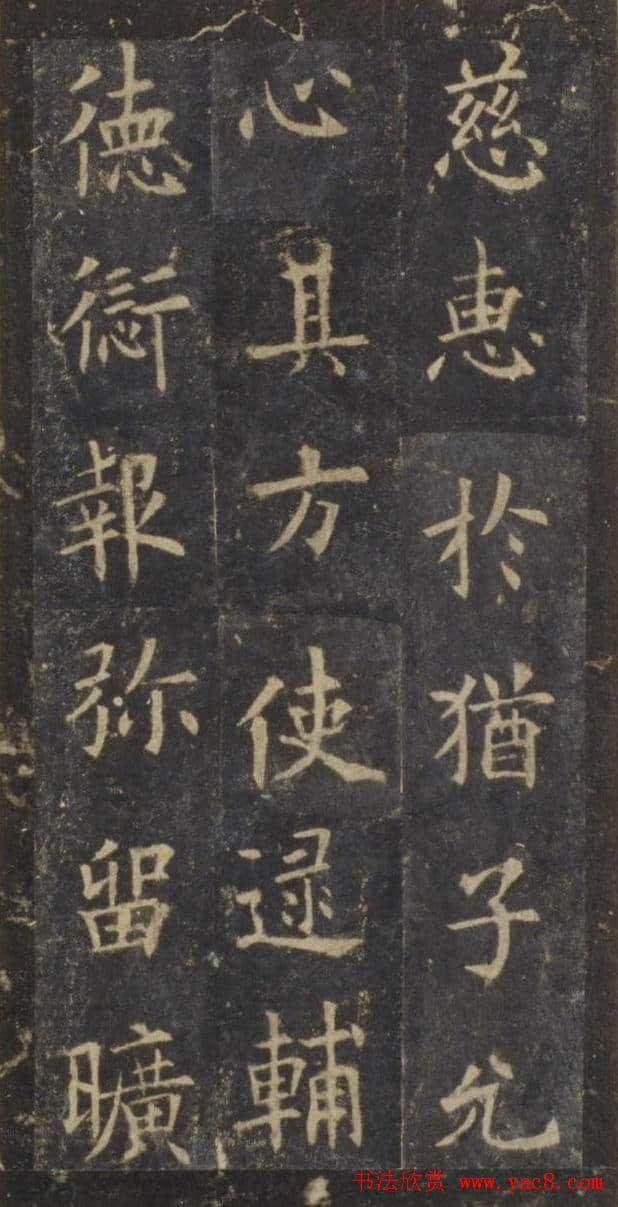 慈惠於猶子允
心具方使逮輔
德愆報弥留曠
书法欣赏 www.yac8.com